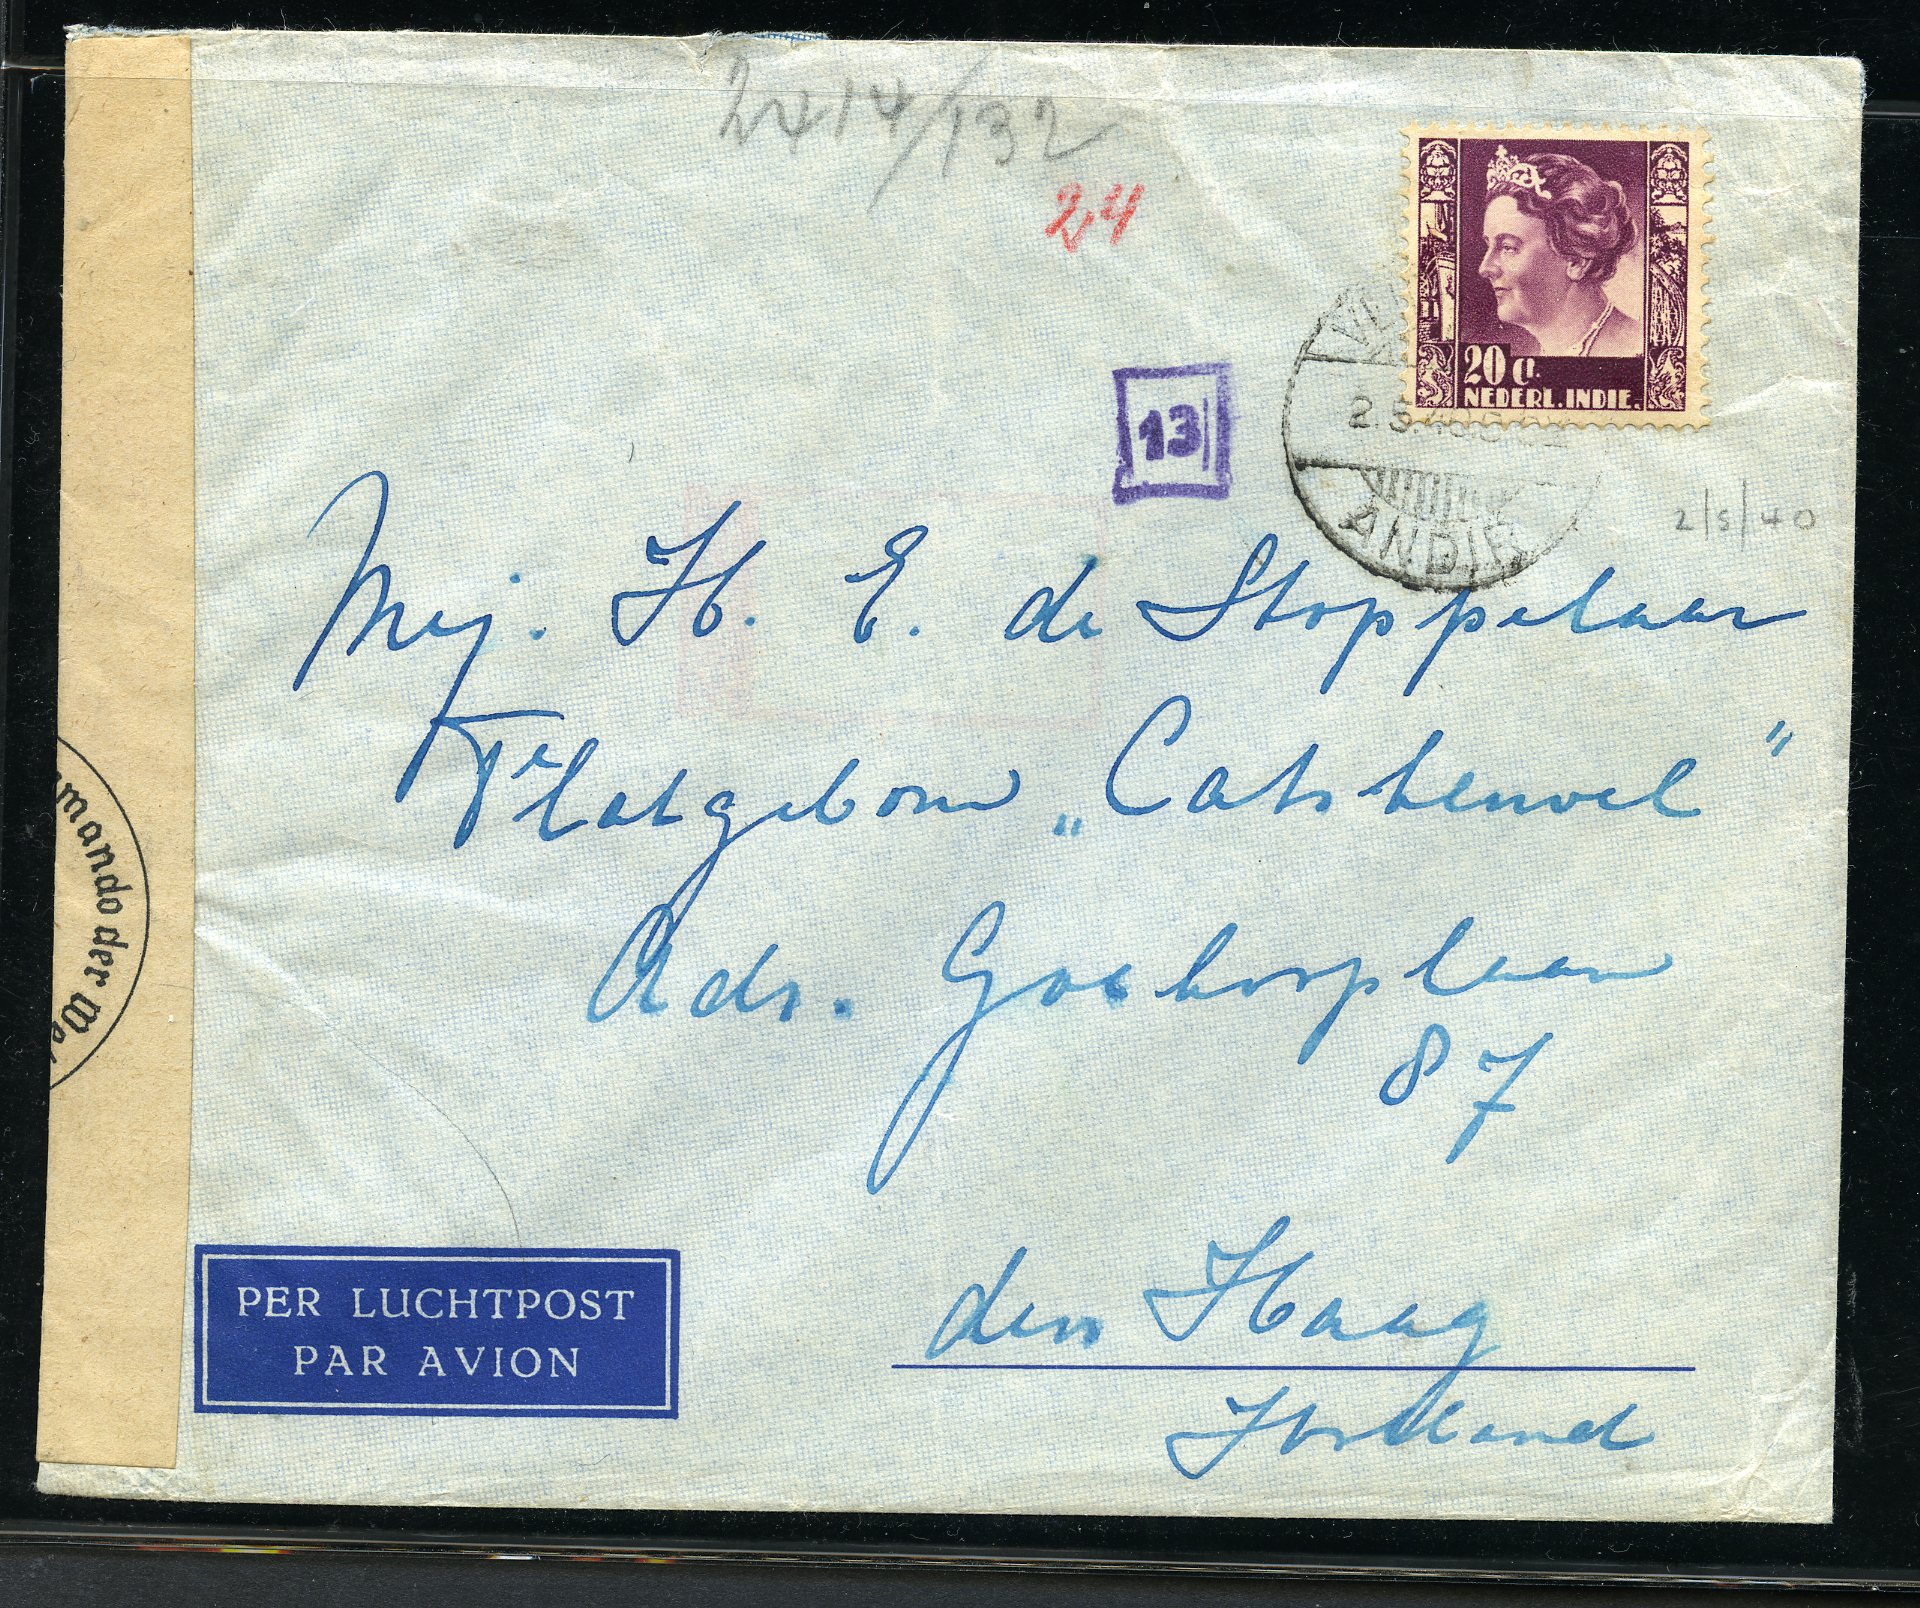 2414/132
24
20 ct.
NEDERL. INDIE.
13
2.5.40
ANDIR
2/5/40
Mej. H. E. de Stoppelaar
Flatgebouw „Catsheuvel"
Adr. Goekooplaan
87
den Haag
Holland
mmando der We
PER LUCHTPOST
PAR AVION